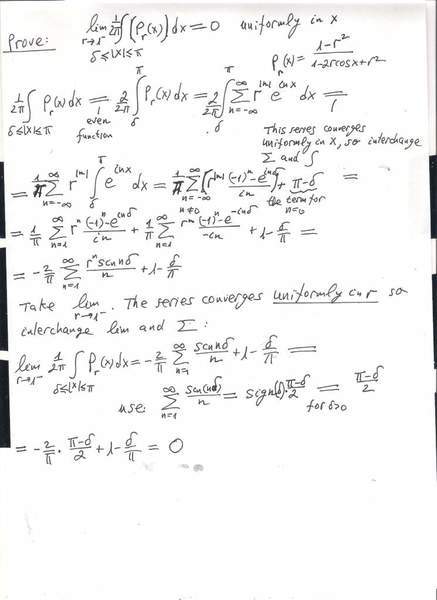 Prove: lim_{r→1⁻} 1/2π ∫_{δ≤|x|≤π} (P_r(x)) dx = 0 uniformly in x
P_r(x) = (1-r²)/(1-2rcosx+r²)
1/2π ∫_{δ≤|x|≤π} P_r(x) dx = 2/2π ∫_δ^π P_r(x) dx = 2/2π ∫_δ^π Σ_{n=-∞}^∞ r^{|n|} e^{inx} dx =
even function
This series converges
uniformly in x, so interchange
Σ and ∫
= 1/π Σ_{n=-∞}^∞ r^{|n|} ∫_δ^π e^{inx} dx = 1/π Σ_{n=-∞, n≠0}^∞ (r^{|n|} ((-1)^n - e^{inδ})/in) + (π-δ)/π =
the term for
n=0
= 1/π Σ_{n=1}^∞ r^n ((-1)^n - e^{inδ})/in + 1/π Σ_{n=1}^∞ r^n ((-1)^n - e^{-inδ})/-in + 1 - δ/π =
= -2/π Σ_{n=1}^∞ (r^n sin nδ)/n + 1 - δ/π
Take lim_{r→1⁻}. The series converges uniformly in r so
interchange lim and Σ:
lim_{r→1⁻} 1/2π ∫_{δ≤|x|≤π} P_r(x) dx = -2/π Σ_{n=1}^∞ (sin nδ)/n + 1 - δ/π =
use: Σ_{n=1}^∞ sin(nδ)/n = sign(δ)·(π-δ)/2 = (π-δ)/2
for δ>0
= -2/π · (π-δ)/2 + 1 - δ/π = 0